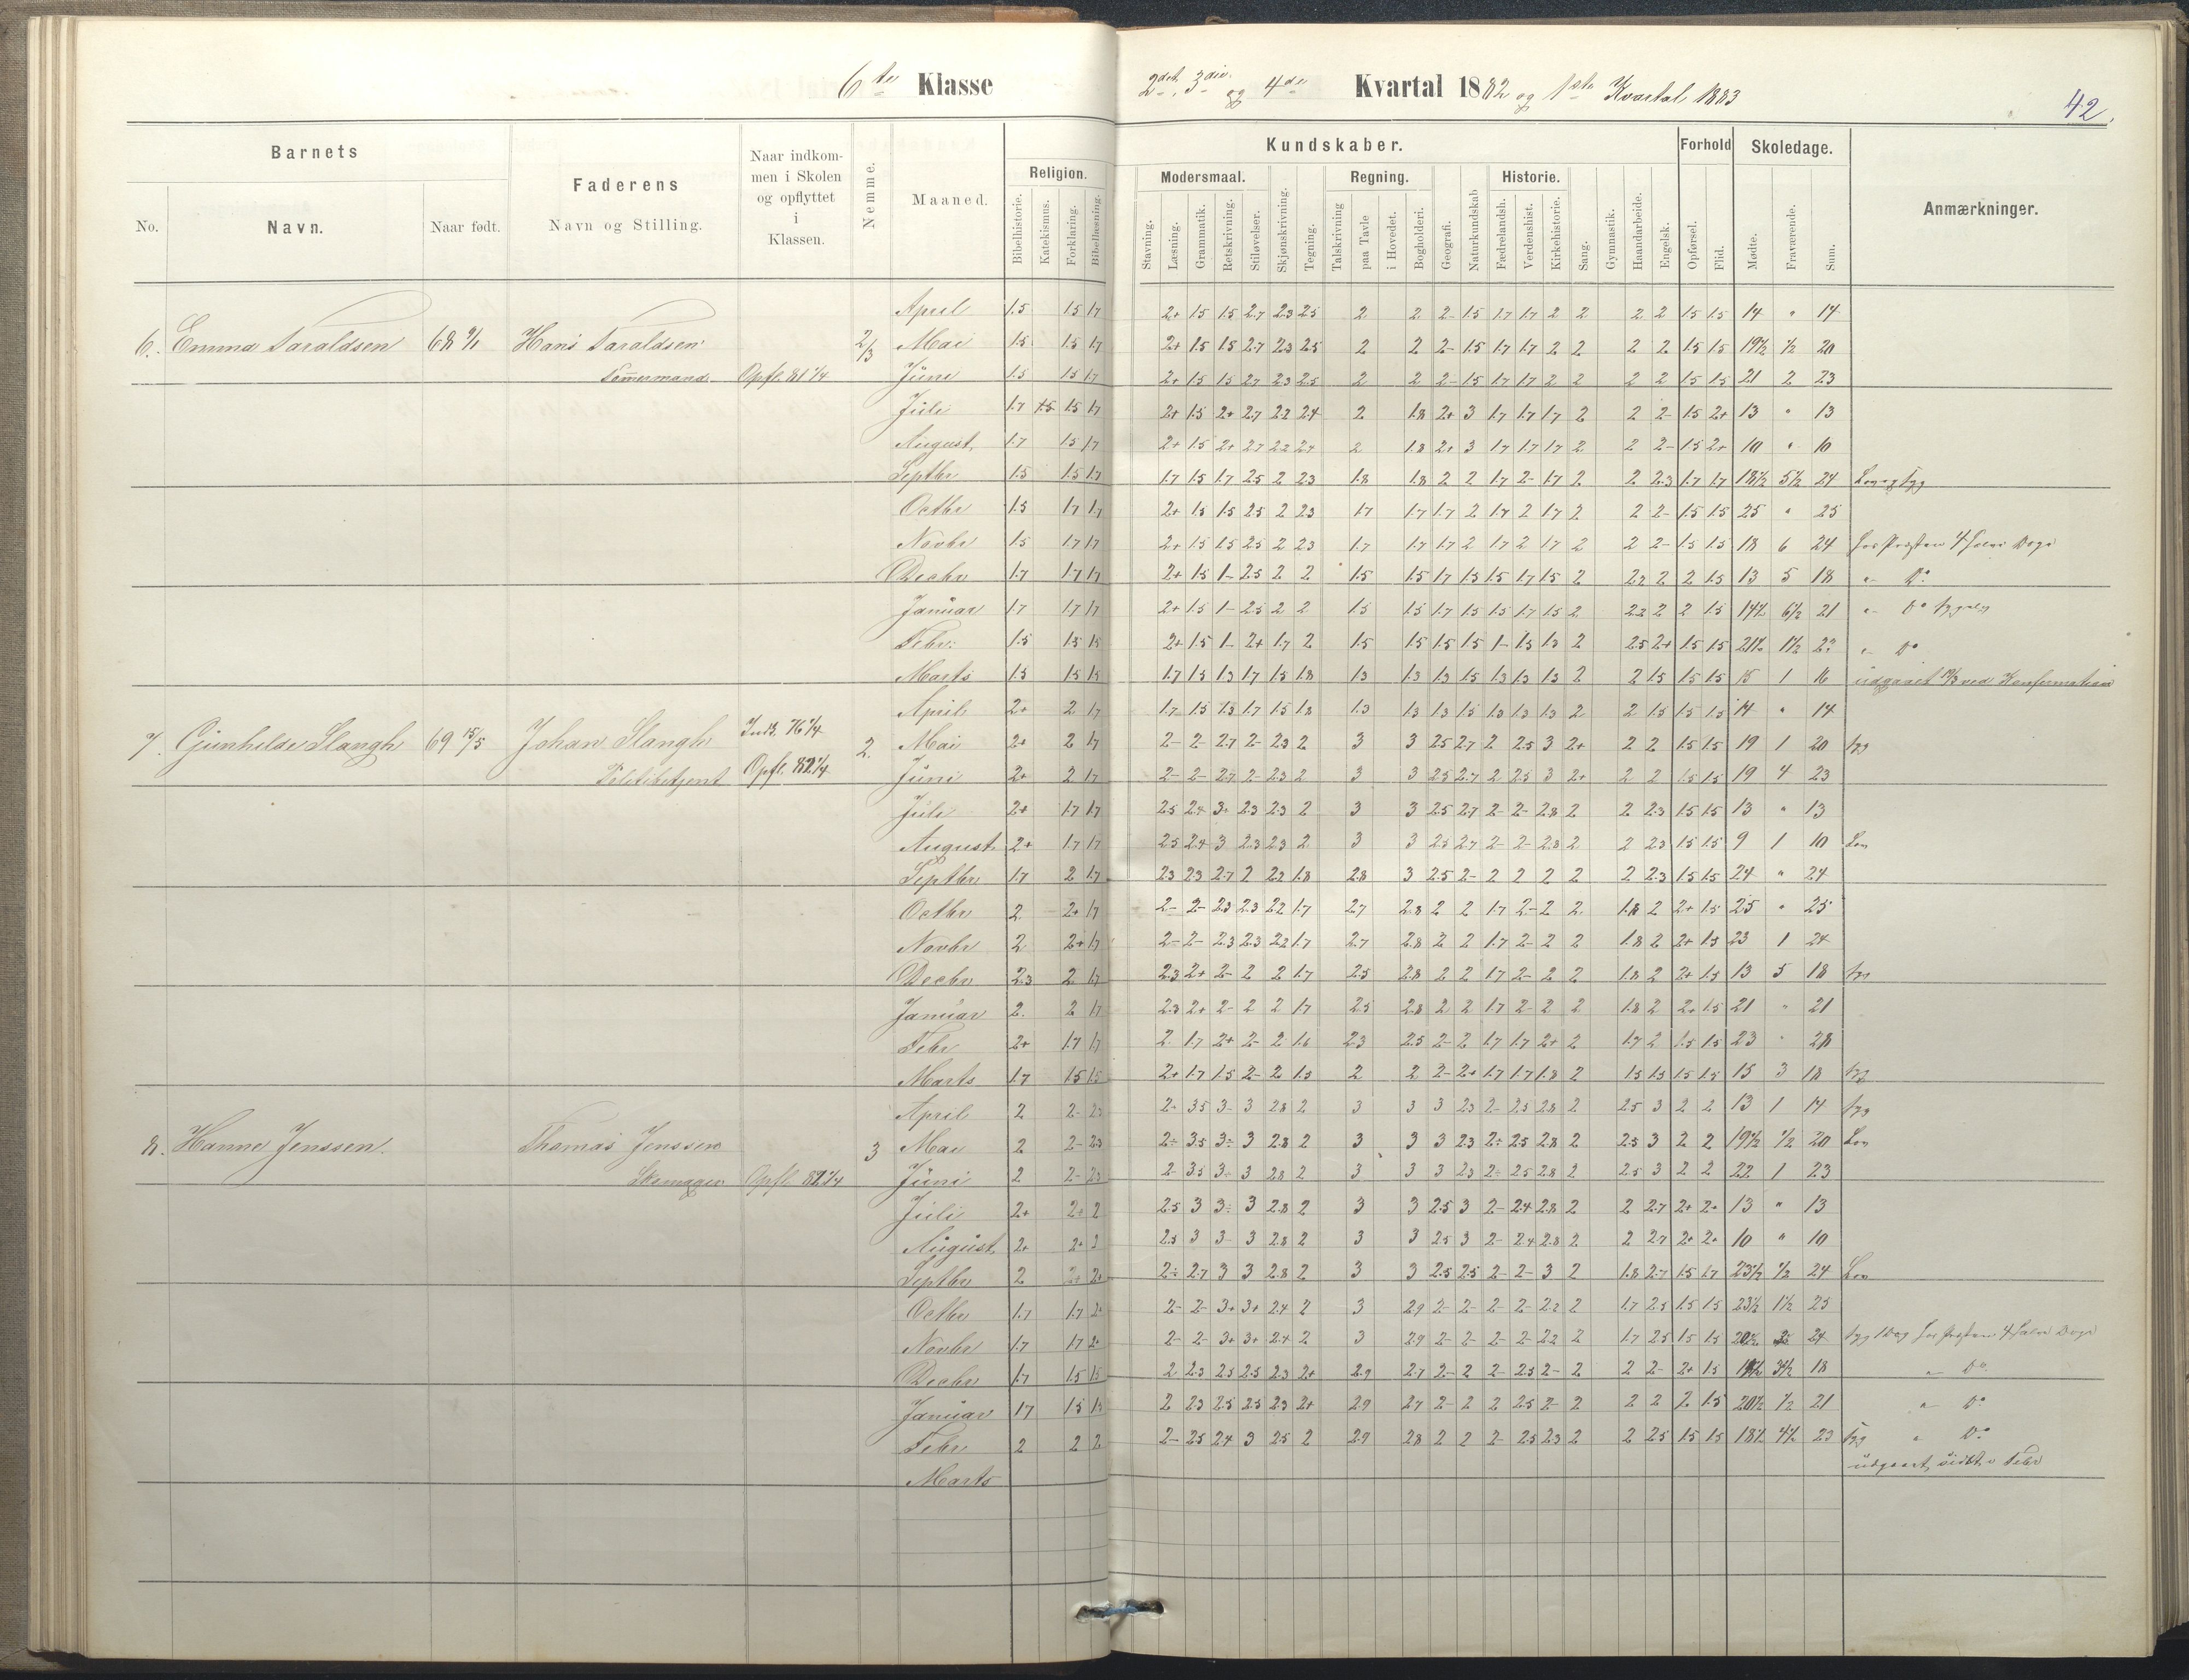 6te Klasse
2det, 3die og 4de Kvartal 1882 og 1ste Kvartal 1883
42.
Barnets
Faderens
Naar indkommen i Skolen og opflyttet i Klassen.
Nemme.
Maaned.
Religion.
Kundskaber.
Forhold
Skoledage.
Anmærkninger.
No.
Navn.
Naar født.
Navn og Stilling.
Bibelhistorie.
Katekismus.
Forklaring.
Bibellæsning.
Modersmaal.
Regning.
Historie.
Stavning.
Læsning.
Grammatik.
Retskrivning.
Stiløvelser.
Skjønskrivning.
Tegning.
Talskrivning
paa Tavle
i Hovedet.
Bogholderi.
Geografi.
Naturkundskab
Fædrelandsh.
Verdenshist.
Kirkehistorie.
Sang.
Gymnastik.
Haandarbeide.
Engelsk.
Opførsel.
Flid.
Mødte.
Fraværende.
Sum.
April 1.5 1.5 1.7 2+ 1.5 1.5 2.7 2.3 2.5 2 2 2- 1.5 1.7 1.7 2 2 2 2 1.5 1.5 14 " 14
6. Emma Taraldsen 68 9/1 Hans Taraldsen 2/3 Mai 1.5 1.5 1.7 2+ 1.5 1.5 2.7 2.3 2.5 2 2 2- 1.5 1.7 1.7 2 2 2 2 1.5 1.5 19½ ½ 20
Tømermand Opfl. 81 1/4 Juni 1.5 1.5 1.7 2+ 1.5 1.5 2.7 2.3 2.5 2 2 2- 1.5 1.7 1.7 2 2 2 2 1.5 1.5 21 2 23
Juli 1.7 1.5 1.5 1.7 2+ 1.5 2+ 2.7 2.2 2.4 2 1.8 2+ 3 1.7 1.7 1.7 2 2 2- 1.5 2+ 13 " 13
August 1.7 1.5 1.7 2+ 1.5 2+ 2.7 2.2 2.4 2 1.8 2+ 3 1.7 1.7 1.7 2 2 2- 1.5 2+ 10 " 10
Septbr 1.5 1.5 1.7 1.7 1.5 1.7 2.5 2 2.3 1.8 1.8 2 2 1.7 2- 1.7 2 2 2.3 1.7 1.7 18½ 5½ 24 Lov og syg
Octbr 1.5 1.7 1.7 2+ 1.5 1.5 2.5 2 2.3 1.7 1.7 1.7 2 1.7 2 1.7 2 2 2- 1.5 1.5 25 " 25
Novbr 1.5 1.7 1.7 2+ 1.5 1.5 2.5 2 2.3 1.7 1.7 1.7 2 1.7 2 1.7 2 2 2- 1.5 1.5 18 6 24 hos Præsten 4 halve Dage
Decbr 1.7 1.7 1.7 2+ 1.5 1- 2.5 2 2 1.5 1.5 1.7 1.5 1.5 1.7 1.5 2 2.2 2 2 1.5 13 5 18 " Do
Januar 1.7 1.7 1.7 2+ 1.5 1- 2.5 2 2 1.5 1.5 1.7 1.5 1.5 1.7 1.5 2 2.2 2 2 1.5 14½ 6½ 21 " Do
Febr. 1.5 1.5 1.5 2+ 1.5 1- 2+ 1.7 2 1.5 1.5 1.5 1.5 1- 1.5 1.3 2 2.5 2+ 1.5 1.5 21½ 1½ 23 " Do
Marts 1.5 1.5 1.5 1.7 1.5 1.3 1.7 1.5 1.8 1.3 1.3 1.3 1.5 1.3 1.3 1.3 2 2 1.5 1.5 1.5 15 1 16 udgaaet ved Konfirmation
April 2+ 2 1.7 1.7 1.5 1.3 1.7 1.5 1.8 1.3 1.3 1.3 1.5 1.3 1.3 1.3 2 2 1.5 1.5 1.5 14 " 14
7. Gunhilde Stangh 69 15/5 Johan Stangh Indk. 76 1/4 2. Mai 2+ 2 1.7 2- 2- 2.7 2- 2.3 2 3 3 2.5 2.7 2 2.5 3 2+ 2 2 1.5 1.5 19 1 20 syg
Politibetjent Opfl. 82 1/4 Juni 2+ 2 1.7 2- 2- 2.7 2- 2.3 2 3 3 2.5 2.7 2 2.5 3 2+ 2 2 1.5 1.5 19 4 23
Juli 2+ 1.7 1.7 2.5 2.4 3+ 2.3 2.3 2 3 3 2.5 2.7 2- 2- 2.8 2 2 2.3 1.5 1.5 13 " 13
August 2+ 1.7 1.7 2.5 2.4 3 2.3 2.3 2 3 3 2.5 2.7 2- 2- 2.8 2 2 2.3 1.5 1.5 9 1 10 Lov
Septbr 1.7 2 1.7 2.3 2.3 2.7 2 2.2 1.8 2.8 3 2.5 2- 2 2 2 2 2 2.3 1.5 1.5 24 " 24
Octbr 2 2+ 1.7 2- 2- 2.3 2.3 2.2 1.7 2.7 2.8 2 2 1.7 2- 2 2 1.8 2 2+ 1.5 25 " 25
Novbr 2 2+ 1.7 2- 2- 2.3 2.3 2.2 1.7 2.7 2.8 2 2 1.7 2- 2 2 1.8 2 2+ 1.5 23 1 24
Decbr 2.3 2 1.7 2.3 2+ 2- 2 2 1.7 2.5 2.8 2 2 1.7 2- 2 2 1.8 2 2+ 1.5 13 5 18 syg
Januar 2. 2 1.7 2.3 2+ 2- 2 2 1.7 2.5 2.8 2 2 1.7 2- 2 2 1.8 2 2+ 1.5 21 " 21
Febr 2+ 1.7 1.7 2 1.7 2+ 2- 2 1.6 2.3 2.5 2- 2 1.7 1.7 2+ 2 1.7 2 1.5 1.5 23 " 23
Marts 1.7 1.5 1.5 2+ 1.7 1.5 2- 2 1.5 2 2 2- 2+ 1.7 1.7 1.8 2 1.5 1.5 1.5 1.5 15 3 18 syg
April 2 2- 2.3 2- 3.5 3- 3 2.8 2 3 3 3 2.3 2- 2.5 2.8 2 2.5 3 2 2 13 1 14 syg
8. Hanne Jenssen. Thomas Jenssen 3 Mai 2 2- 2.3 2÷ 3.5 3÷ 3 2.8 2 3 3 3 2.3 2÷ 2.5 2.8 2 2.5 3 2 2 19½ ½ 20 Lov
Skomager Opfl. 82 1/4 Juni 2 2- 2.3 2- 3.5 3÷ 3 2.8 2 3 3 3 2.3 2÷ 2.5 2.8 2 2.5 3 2 2 22 1 23
Juli 2+ 2+ 2 2.5 3 3÷ 3 2.8 2 3 3 2.5 3 2- 2.4 2.8 2 2 2.7 2+ 2+ 13 " 13
August 2+ 2+ 2 2.5 3 3- 3 2.8 2 3 3 2.5 3 2- 2.4 2.8 2 2 2.7 2+ 2+ 10 " 10
Septbr 2 2+ 2+ 2÷ 2.7 3 3 2.8 2 3 3 2.5 2.5 2- 2- 3 2 1.8 2.7 1.5 1.7 23½ ½ 24 Lov
Octbr 1.7 1.7 2+ 2- 2- 3+ 3+ 2.4 2 3 2.9 2- 2- 2- 2- 2.2 2 1.7 2.5 1.5 1.5 23½ 1½ 25
Novbr 1.7 1.7 2+ 2- 2- 3+ 3+ 2.4 2 3 2.9 2- 2- 2- 2- 2.2 2 1.7 2.5 1.5 1.5 24 syg 1 Dag hos Præsten 4 halve Dage
Decbr 1.7 1.5 1.5 2 2.3 2.5 2.5 2.3 2+ 2.9 2.7 2- 2 2- 2.5 2- 2 2 2- 2+ 1.5 3½ 18 " Do
Januar 1.7 1.5 1.5 2 2.3 2.5 2.5 2.3 2+ 2.9 2.7 2- 2 2 2.5 2- 2 2 2 2 1.5 20½ ½ 21 " Do
Febr 2 2 2 2- 2.5 2.4 3 2.5 2 2.9 2.8 2 2 2- 2.5 2.3 2 2 2.5 1.5 1.5 18½ 4½ 23 syg " Do
Marts udgaaet sidst i Febr